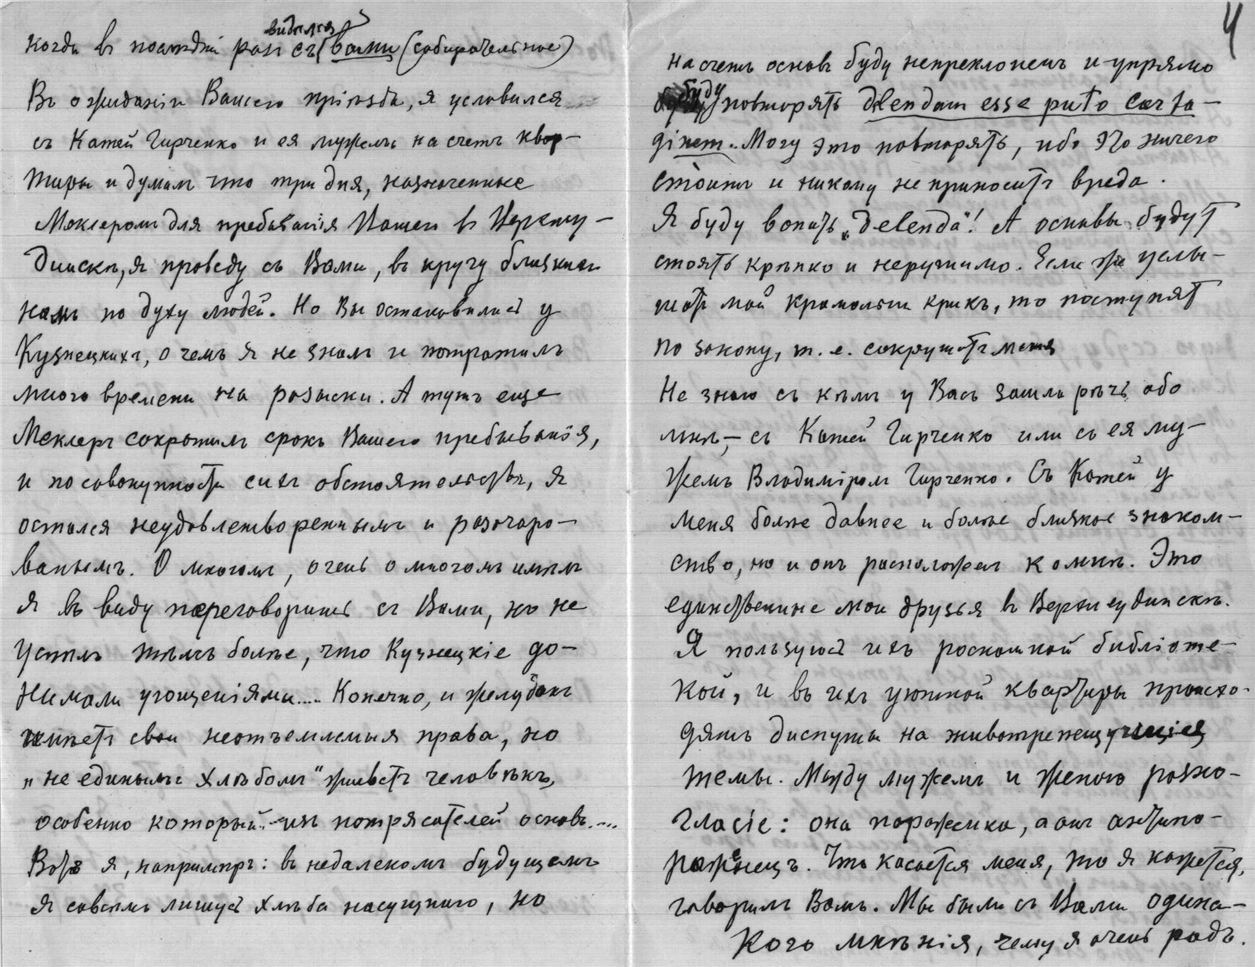 когда в последній раз видѣлся съ вами (собирательное)
Въ ожиданіи Вашего пріѣзда, я условился
съ Катей Гирченко и ея мужемъ насчетъ квар-
тиры и думалъ что три дня, назначенные
Меклеромъ для пребыванія Вашего в Верхну-
динскѣ, я проведу съ Вами, въ кругу близких
намъ по духу людей. Но Вы остановились у
Кузнецкихъ, о чемъ я не зналъ и потратилъ
много времени на розыски. А тутъ еще
Меклеръ сократилъ срокъ Вашего пребыванія,
и по совокупности сихъ обстоятельствъ, я
остался неудовлетвореннымъ и разочаро-
ваннымъ. О многомъ, очень о многомъ имѣлъ
я въ виду переговорить съ Вами, но не
успѣлъ тѣмъ болѣе, что Кузнецкіе до-
нимали угощеніями.... Конечно, и желудокъ
имѣетъ свои неотъемлемыя права, но
„не единымъ хлѣбомъ" живетъ человѣкъ,
особенно который из потрясателей основъ....
Вотъ я, напримѣръ: въ недалекомъ будущемъ
я совсѣмъ лишусь хлѣба насущнаго, но
4
насчетъ основъ буду непреклоненъ и упрямо
буду повторять delendam esse puto Carta-
ginem. Могу это повторять, ибо это ничего
стоитъ и никому не приноситъ вреда.
Я буду вопить „delenda"! А основы будут
стоять крѣпко и нерушимо. Если же услы-
шат мой крамольн крикъ, то поступят
по закону, т. е. сокрушатъ меня
Не знаю съ кѣмъ у Васъ зашла рѣчь обо
мнѣ,– съ Катей Гирченко или съ ея му-
жемъ Владиміромъ Гирченко. Съ Катей у
меня болѣе давнее и болѣе близкое знаком-
ство, но и онъ расположен ко мнѣ. Это
единственные мои друзья в Верхнеудинскѣ.
Я пользуюсь ихъ роскошной библіоте-
кой, и въ ихъ уютной квартирѣ происхо-
дятъ диспуты на животрепещущія
темы. Между мужемъ и женою разно-
гласіе: она пораженка, а онъ антипо-
раженецъ. Что касается меня, то я кажется,
говорилъ Вамъ. Мы были съ Вами одина-
кого мнѣнія, чему я очень радъ.